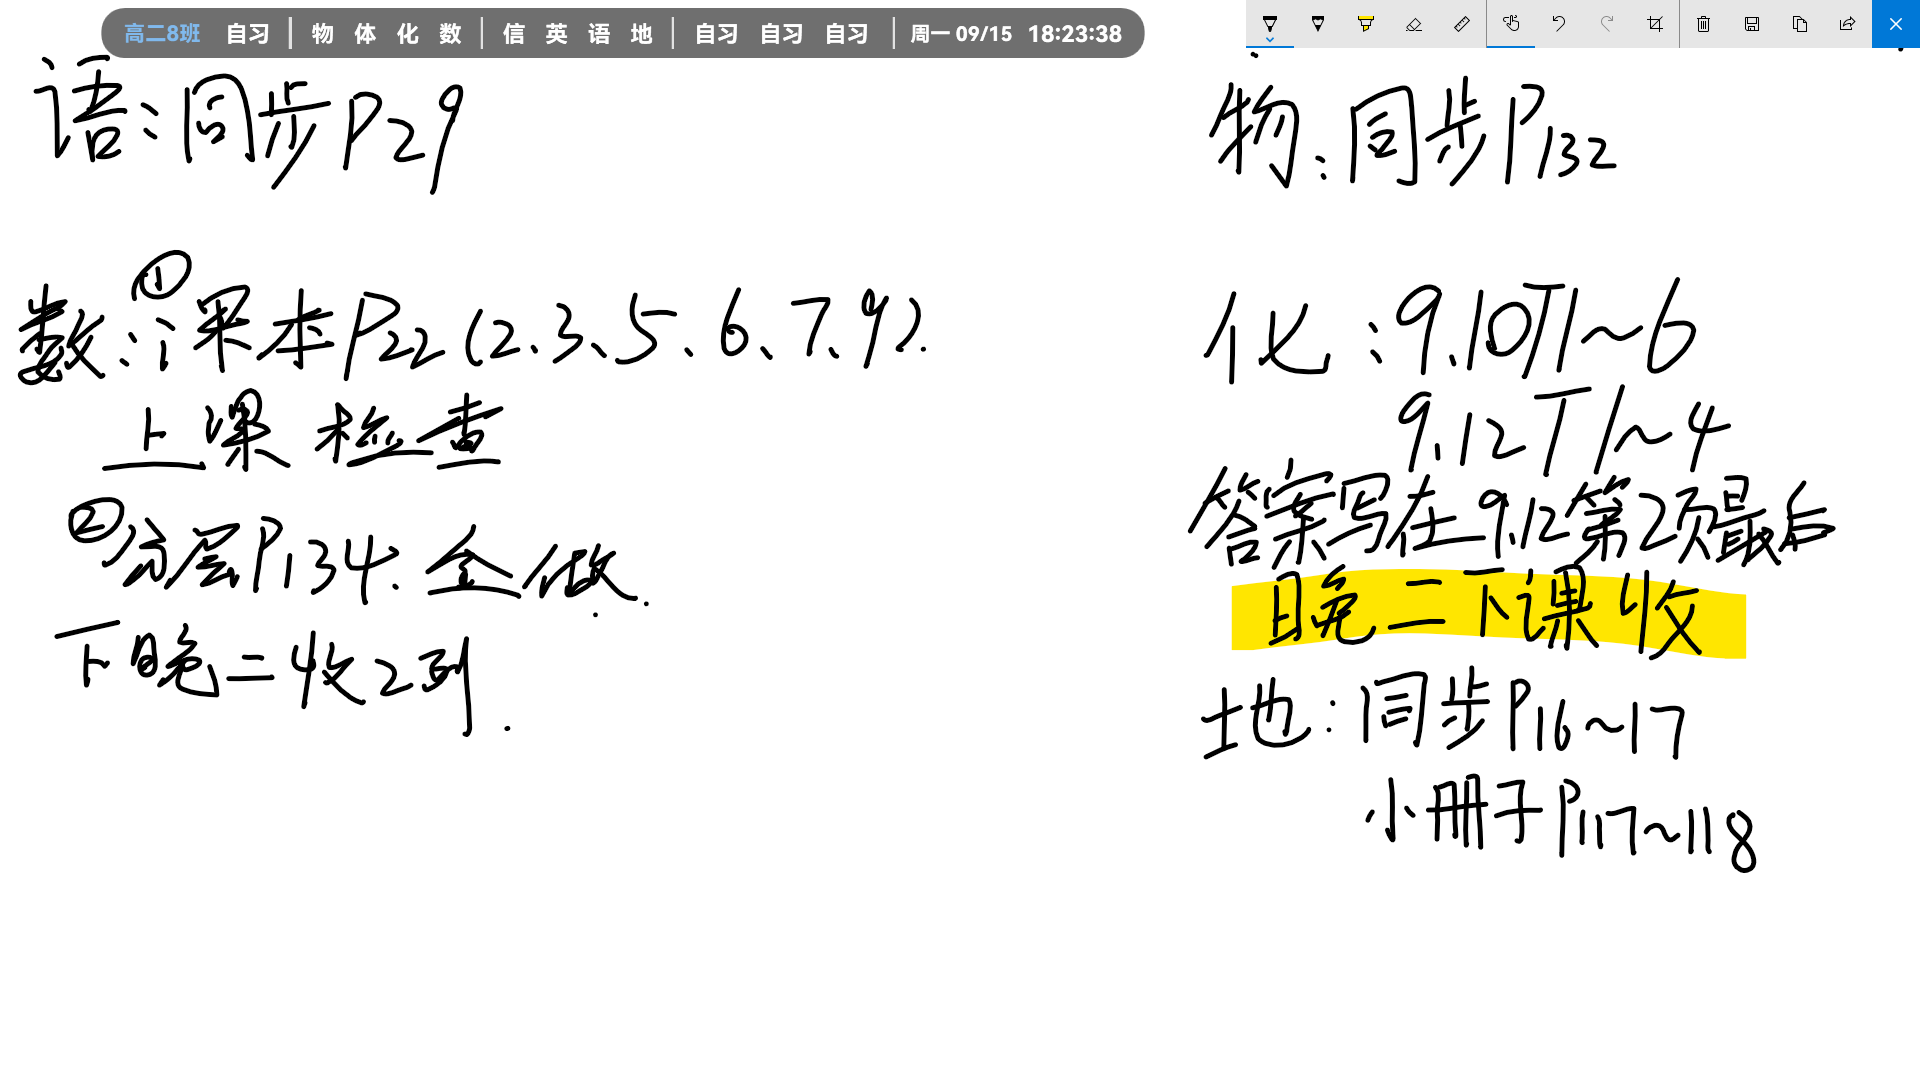 高二8班 自习 | 物 体 化 数 | 信 英 语 地 | 自习 自习 自习 | 周一 09/15 18:23:38
语:同步P29
数:①课本P22(2、3、5、6、7、9).
上课检查
②分层P134.全做.
下晚二收2列.
物:同步P132
化:9.10T1~6
9.12T1~4
答案写在9.12第2项最后
晚二下课收
地:同步P16~17
小册子P117~118